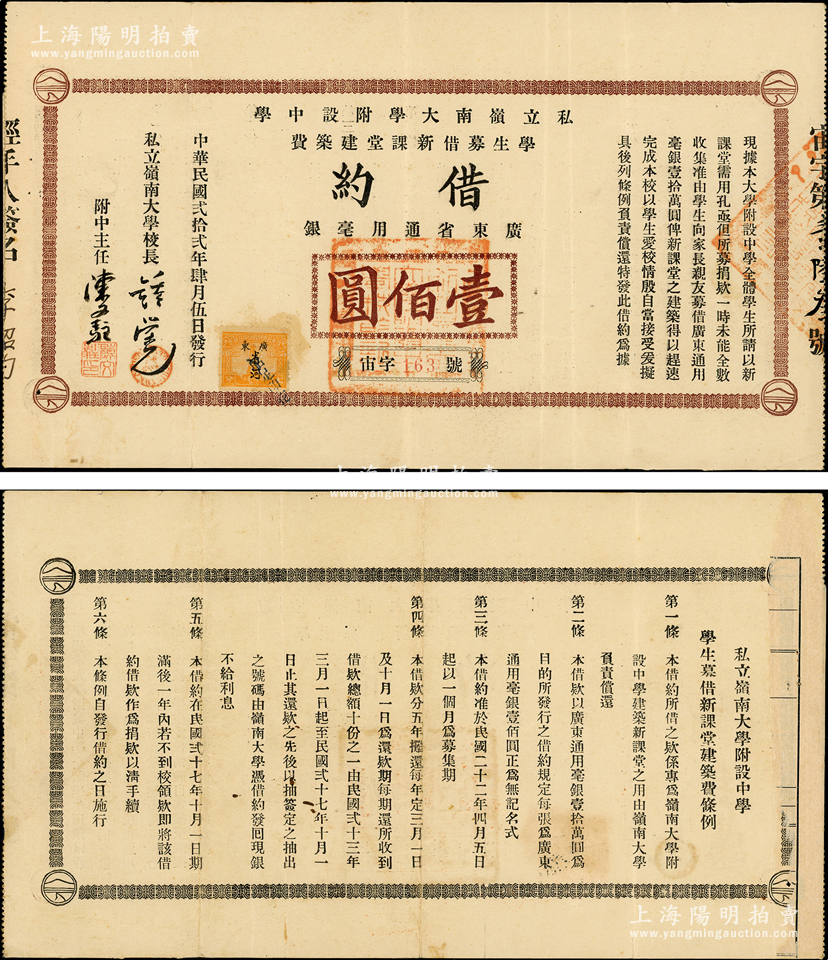 上海陽明拍賣
www.yangmingauction.com
私立嶺南大學附設中學
學生募借新課堂建築費
借約
廣東省通用毫銀
壹佰圓
宙字 163 號
現據本大學附設中學全體學生所請以新
課堂需用孔亟但所募捐欵一時未能全數
收集准由學生向家長親友募借廣東通用
毫銀壹拾萬圓俾新課堂之建築得以趕速
完成本校以學生愛校情殷自當接受爰擬
具後列條例負責償還特發此借約爲據
中華民國弍拾弍年肆月伍日發行
私立嶺南大學校長
附中主任
廣東
經手人簽名
上海陽明拍賣
www.yangmingauction.com
私立嶺南大學附設中學
學生募借新課堂建築費條例
第一條 本借約所借之欵係專爲嶺南大學附
設中學建築新課堂之用由嶺南大學
負責償還
第二條 本借欵以廣東通用毫銀壹拾萬圓爲
目的所發行之借約規定每張爲廣東
通用毫銀壹佰圓正爲無記名式
第三條 本借約准於民國二十二年四月五日
起以一個月爲募集期
第四條 本借欵分五年攤還每年定三月一日
及十月一日爲還欵期每期還所收到
借欵總額十份之一由民國弍十三年
三月一日起至民國弍十七年十月一
日止其還欵之先後以抽簽定之抽出
之號碼由嶺南大學憑借約發回現銀
不給利息
第五條 本借約在民國弍十七年十月一日期
滿後一年內若不到校領欵即將該借
約借欵作爲捐欵以淸手續
第六條 本條例自發行借約之日施行
上海陽明拍賣
www.yangmingauction.com